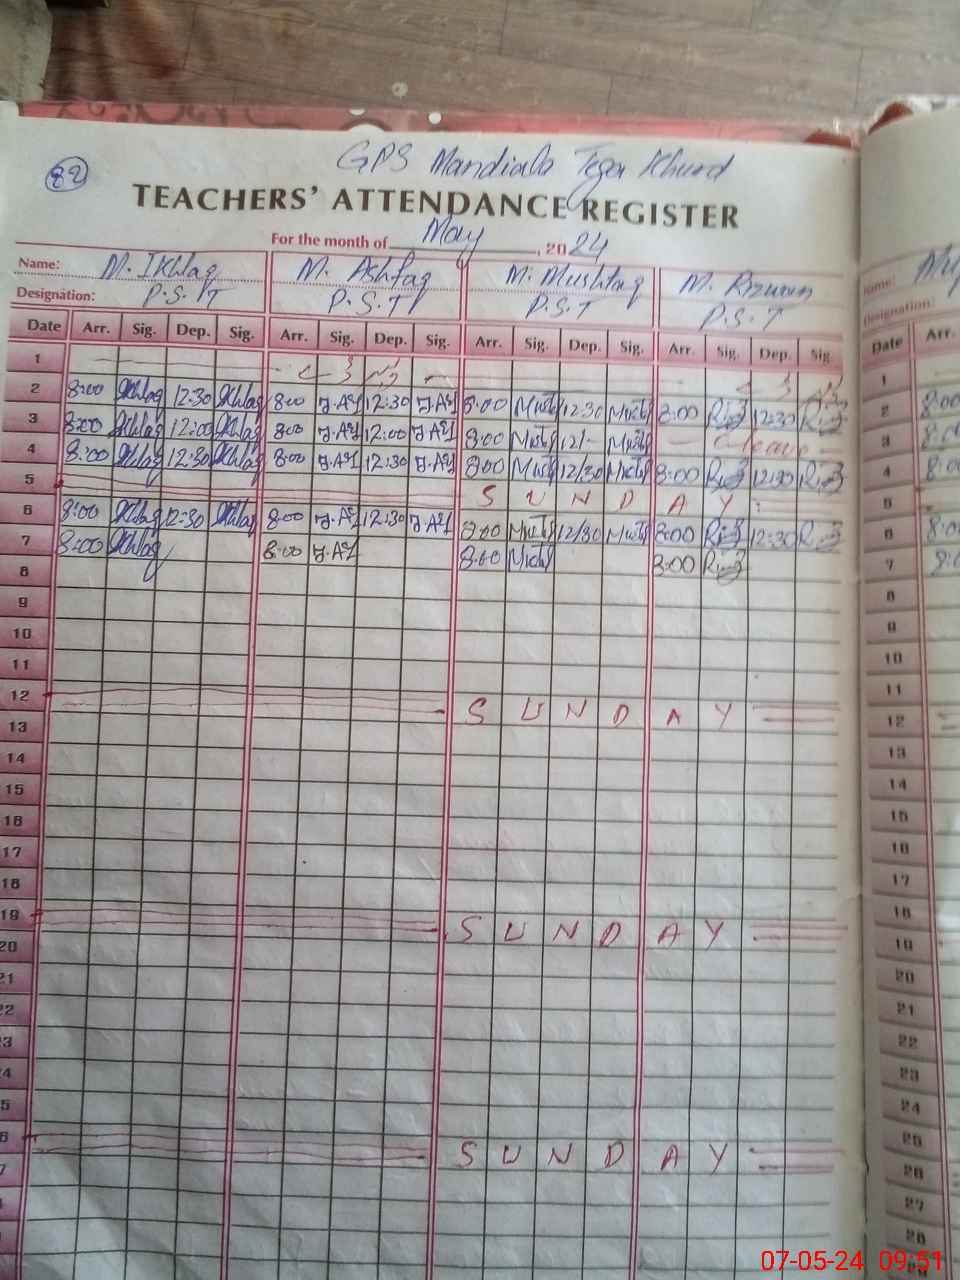 82
GPS Mandiala Tega Khurd
TEACHERS' ATTENDANCE REGISTER
For the month of May, 2024
Name: M. Ikhlaq M. Ashfaq M. Mushtaq M. Rizwan
Designation: P.S.T P.S.T P.S.T P.S.T
Date Arr. Sig. Dep. Sig. Arr. Sig. Dep. Sig. Arr. Sig. Dep. Sig. Arr. Sig. Dep. Sig.
1
2 8:00 Ikhlaq 12:30 Ikhlaq 8:00 12:30 8:00 Musht 12:30 Musht 8:00 Riz 12:30 Riz
3 8:00 Ikhlaq 12:00 Ikhlaq 8:00 12:00 8:00 Musht 12/- Musht leave
4 8:00 Ikhlaq 12:30 Ikhlaq 8:00 12:30 8:00 Musht 12/30 Musht 8:00 Riz 12:30 Riz
5 S U N D A Y
6 8:00 Ikhlaq 12:30 Ikhlaq 8:00 12:30 8:00 Musht 12/30 Musht 8:00 Riz 12:30 Riz
7 8:00 Ikhlaq 8:00 8:00 Musht 8:00 Riz
8
9
10
11
12 S U N D A Y
13
14
15
16
17
18
19 S U N D A Y
20
21
22
3
4
5
6 S U N D A Y
7
Name:
Designation:
Date Arr.
1
2 8:00
3 8:00
4 8:00
5
6 8:00
7 8:0
8
9
10
11
12
13
14
15
16
17
18
19
20
21
22
23
24
25
26
27
28
07-05-24 09:51